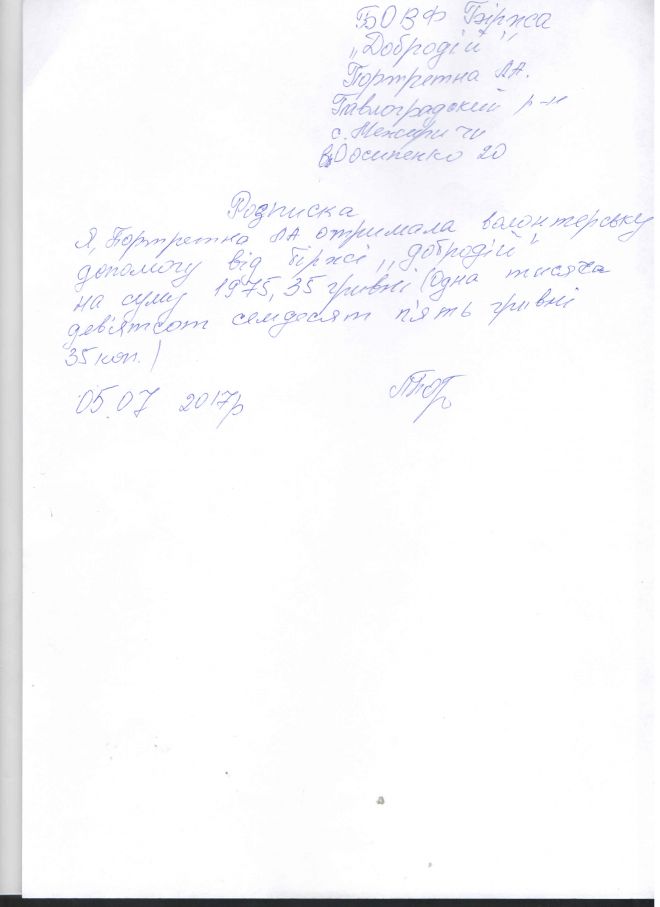 БОВФ Біржа
„Добродій"
Портретна ЛА.
Павлоградский р-н
с. Межиричи
Осипенко 20
Розписка
Я, Портретна ЛА отримала волонтерську
допомогу від біржі „добродій"
на суму 1975,35 гривні (Одна тисяча
дев'ятсот семдосят п'ять гривні
35 коп.)
05.07 2017р